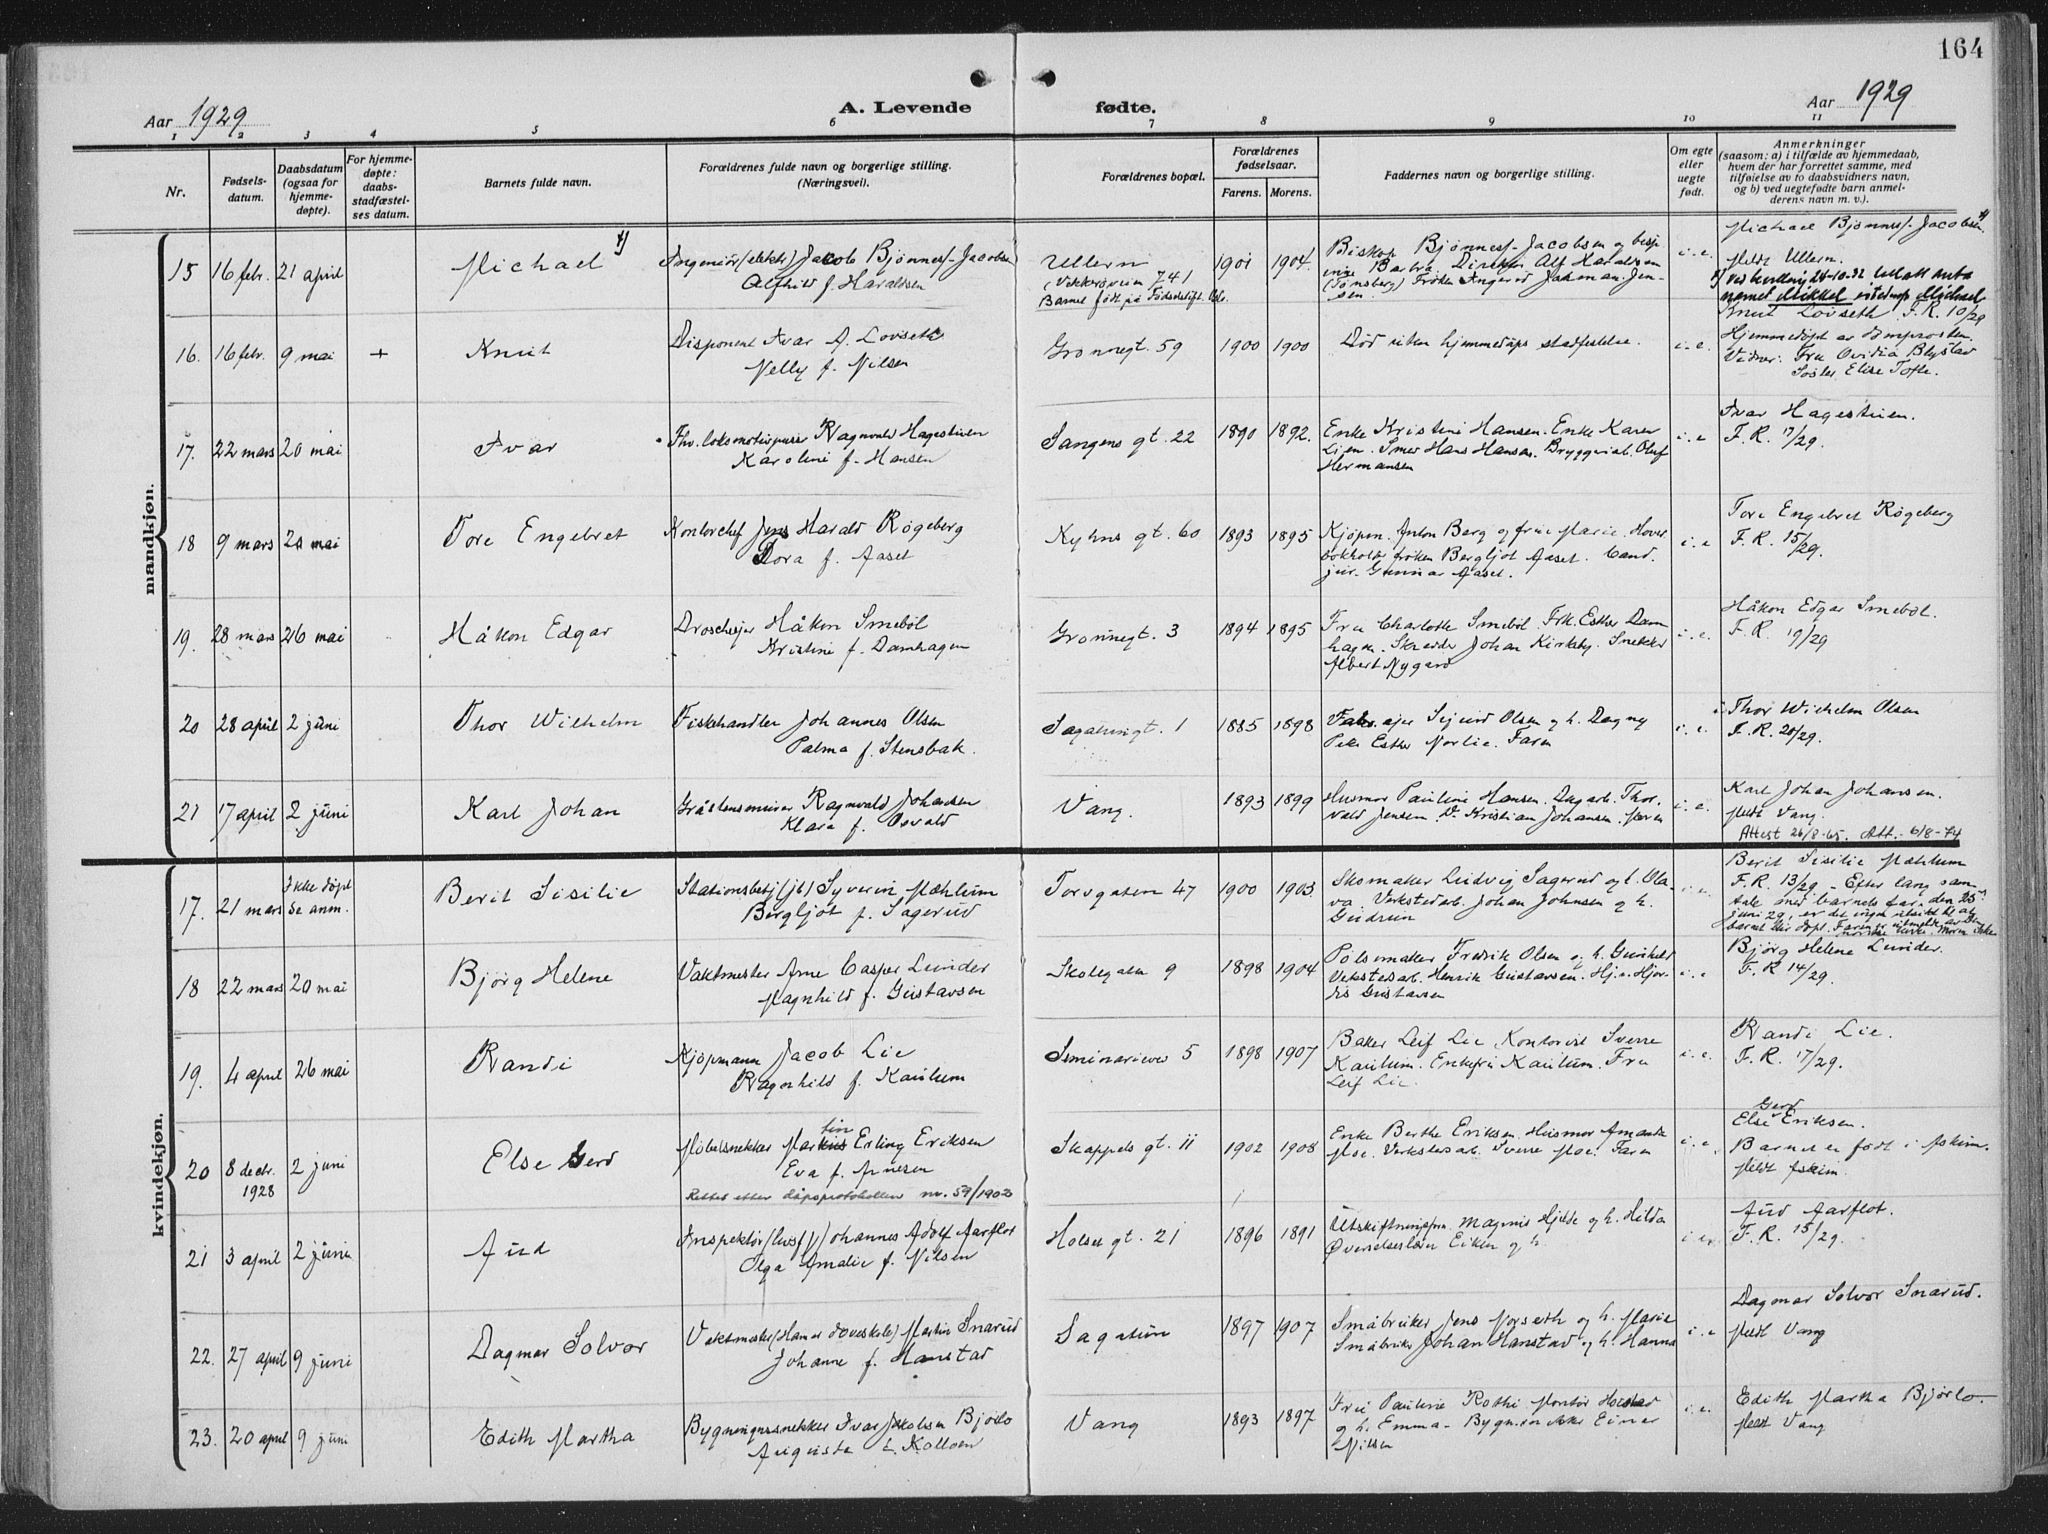 164
Aar 1929
A. Levende fødte.
Aar 1929
1 2 3 4 5 6 7 8 9 10 11
Nr.
Fødsels-
datum.
Daabsdatum
(ogsaa for
hjemme-
døpte).
For hjemme-
døpte:
daabs-
stadfæstel-
ses datum.
Barnets fulde navn.
Forældrenes fulde navn og borgerlige stilling.
(Næringsvei).
Forældrenes bopæl.
Forældrenes
fødselsaar.
Farens. Morens.
Faddernes navn og borgerlige stilling.
Om egte
eller
uegte
født.
Anmerkninger
(saasom: a) i tilfælde av hjemmedaab,
hvem der har forrettet samme, med
tilføielse av to daabsvidners navn,
og b) ved uegtefødte barn anmel-
derens navn m. v.).
mandkjøn.
15 16 febr. 21 april Michael
Ingeniör (elektr) Jacob Bjønnes-Jacobsen
Alfhild f. Haraldsen
Ullern
(Vækkerøveien 741
Barnet født på Fødselsstift. Oslo.
1901 1904
Biskop Bjønnes-Jacobsen og bisp-
inne Barbra. Direktör Alf Haraldsen
(Tønsberg) Frøken Ingerid Jakman-Jen-
sen.
i. e.
Michael Bjønnes-Jacobsen.
Meldt Ullern.
x) Ved bevilling 24-10-32 tillatt anta
namnet Mikkel istedenf. Michael
16. 16 febr. 9 mai + Knut
Disponent Ivar A. Lovseth
Nelly f. Nilsen
Grønnegt. 59 1900 1900
Död uten hjemmedåps stadfestelse.
i. e.
Knut Lovseth F. R. 10/29
Hjemmedöpt av domprosten.
Vidner: Fru Ovidia Blystad
Søster Elise Tofte.
17. 22 mars 20 mai Ivar
Fhv. lokomotivpuss Ragnvald Hagestuen
Karoline f. Hansen
Vangens gt. 22 1890 1892.
Enke Kristine Hansen. Enke Karen
Lien. Smed Hans Hansen. Bryggeriarb. Oluf
Hermansen
i. e
Ivar Hagestuen.
F. R. 17/29.
18 9 mars 20 mai Tore Engebret
Kontorchef Jens Harald Røgeberg
Dora f. Aaset
Kyhns gt. 60 1893 1895
Kjöpm. Anton Berg og frue Marie. Hover
bokholder frøken Bergljot Aaset. Cand.
jur. Gunnar Aaset.
i. e
Tore Engebret Røgeberg
F. R. 15/29.
19. 28 mars 26 mai Håkon Edgar
Droscheeier Håkon Smeböl
Kristine f. Damhagen
Grønnegt. 3 1894 1895
Fru Charlotte Smeböl. Frk. Esther Dam
hagen. Skredder Johan Kirkeby. Snekker
Albert Nygård
i. e.
Håkon Edgar Smeböl.
F. R. 19/29
20 28 april 2 juni Thor Wilhelm
Fiskehandler Johannes Olsen
Palma f. Stensbak.
Sagatungt. 1 1885 1898
Fabr. eier Sigurd Olsen og h. Dagny
Esther Norlie. Faren
i. e.
Thor Wilhelm Olsen
F. R. 20/29.
21 17 april 2 juni Karl Johan
Gråstensmurer Ragnvald Johansen
Klara f. Osvald
Vang. 1893 1899
Husmor Pauline Hansen. Dagarb. Thor-
vald Jensen. Do Kristian Johansen. Faren
i. e.
Karl Johan Johansen.
Meldt Vang.
Attest 26/8-65. Att. 6/8-74
kvindekjøn.
17. 21 mars Ikke döpt
Se anm. Berit Sisilie
Stationsbetj (jb) Syverin Mæhlum
Bergljot f. Sagerud
Torvgaten 47 1900 1903
Skomaker Ludvig Sagerud og h. Ola-
va. Verkstedarb. Johan Johnsen og h.
Gudrun
i. e.
Berit Sisilie Mæhlum
F. R. 13/29. - Efter lang sam-
tale med barnets far den 25
juni 29, er det ingen utsikt til at
barnet blir döpt. Faren er utmeldt av den
norske kirke. Moren ikke
18 22 mars 20 mai Bjørg Helene
Vaktmester Arne Casper Lunder
Magnhild f. Gustavsen
Skolegaten 9 1898 1904
Pölsemaker Fredrik Olsen og h. Gunhild
Verkstedarb. Henrik Gustavsen. Hj.v. Hjör-
dis Gustavsen
i. e
Bjørg Helene Lunder.
F. R. 14/29.
19. 4 april 26 mai Randi
Kjöpmann Jacob Lie
Ragnhild f. Kaurum
Seminarievei 5 1898 1907
Baker Leif Lie. Kontorist Sverre
Kaurum. Enkefru Kaurum. Fru
Leif Lie.
i. e.
Randi Lie.
F. R. 17/29.
20 8 decbr.
1928 2 juni Else Gerd
Möbelsnekker Markus tin Erling Eriksen
Eva f. Arnesen
Rettet etter dåpsprotokollen nr. 59/1902
Skappels gt. 11 1902 1908
Enke Berthe Eriksen. Husmor Amanda
Moe. Verkstedarb. Sverre Moe. Faren
i. e
Gerd
Else Eriksen.
Barnet er född i Askim.
Meldt Askim.
21 3 april 2 juni Aud
Inspektør (livsf.) Johannes Adolf Aarflot
Olga Amalie f. Nilsen
Holset gt. 21 1896 1891
Utskiftningsform. Magnus Hjelde og h. Hilda
Øverselselærer Eiken og h.
i e.
Aud Aarflot.
F. R. 15/29.
22. 27 april 9 juni Dagmar Solvor
Vaktmester (Hamar døveskole) Martin Snarud
Johanne f. Hanstad
Sagatun 1897 1907
Småbruker Jens Norseth og h. Marie
Småbruker Johan Hanstad og h. Hanna
i. e
Dagmar Solvor Snarud.
Meldt Vang
23. 20 april 9 juni Edith Martha
Bygningssnekker Ivar Jakobsen Bjørlo
Auguste f. Kolloen
Vang 1893 1897
Fru Pauline Rothi Montör Harstad
og h. Emma. Bygn.snekker Einar
Nilsen
i. e.
Edith Martha Bjørlo.
Meldt Vang